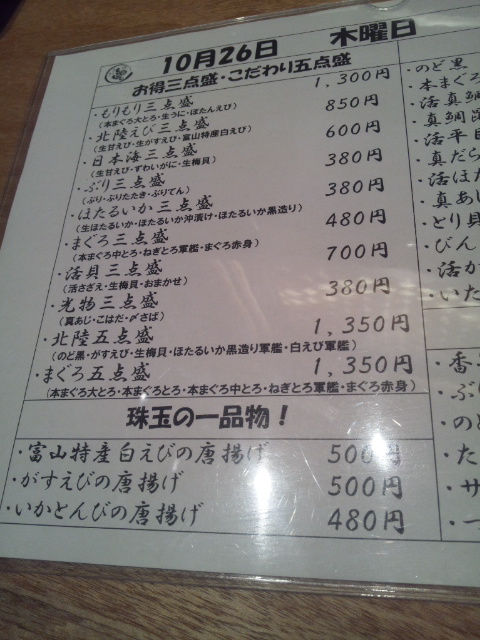 10月26日 木曜日
お得三点盛・こだわり五点盛
・もりもり三点盛 1,300円
(本まぐろ大とろ・生うに・ぼたんえび)
・北陸えび三点盛 850円
(生甘えび・生がすえび・富山特産白えび)
・日本海三点盛 600円
(生甘えび・ずわいがに・生梅貝)
・ぶり三点盛 380円
(ぶり・ぶりたたき・ぶりてん)
・ほたるいか三点盛 380円
(生ほたるいか・ほたるいか沖漬け・ほたるいか黒造り)
・まぐろ三点盛 480円
(本まぐろ中とろ・ねぎとろ軍艦・まぐろ赤身)
・活貝三点盛 700円
(活さざえ・生梅貝・おまかせ)
・光物三点盛 380円
(真あじ・こはだ・〆さば)
・北陸五点盛 1,350円
(のど黒・がすえび・生梅貝・ほたるいか黒造り軍艦・白えび軍艦)
・まぐろ五点盛 1,350円
(本まぐろ大とろ・本まぐろとろ・本まぐろ中とろ・ねぎとろ軍艦・まぐろ赤身)
珠玉の一品物!
・富山特産白えびの唐揚げ 500円
・がすえびの唐揚げ 500円
・いかとんびの唐揚げ 480円
・のど黒
・本まぐろ
・活真鯛
・真鯛
・活平目
・真だら
・活ほた
・真あじ
・とり貝
・びん
・活か
・いた
・香
・ぶり
・のど
・た
・サ